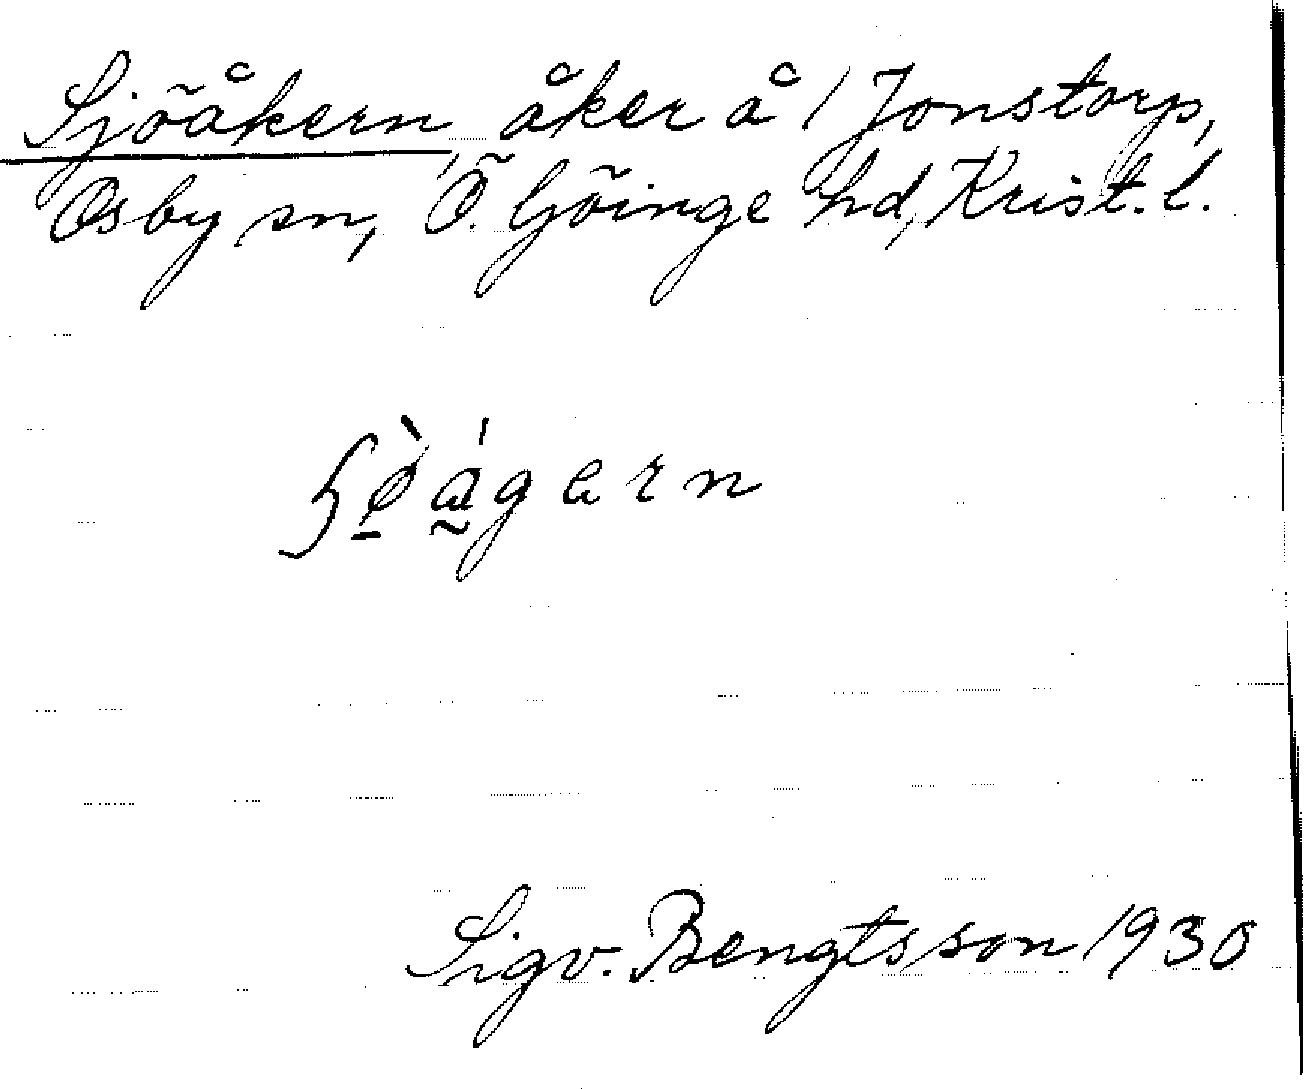 Sjöåkern, åker å 1 Jonstorp,
Osby sn, Ö. Göinge hd, Krist. l.
Sigv. Bengtsson 1930